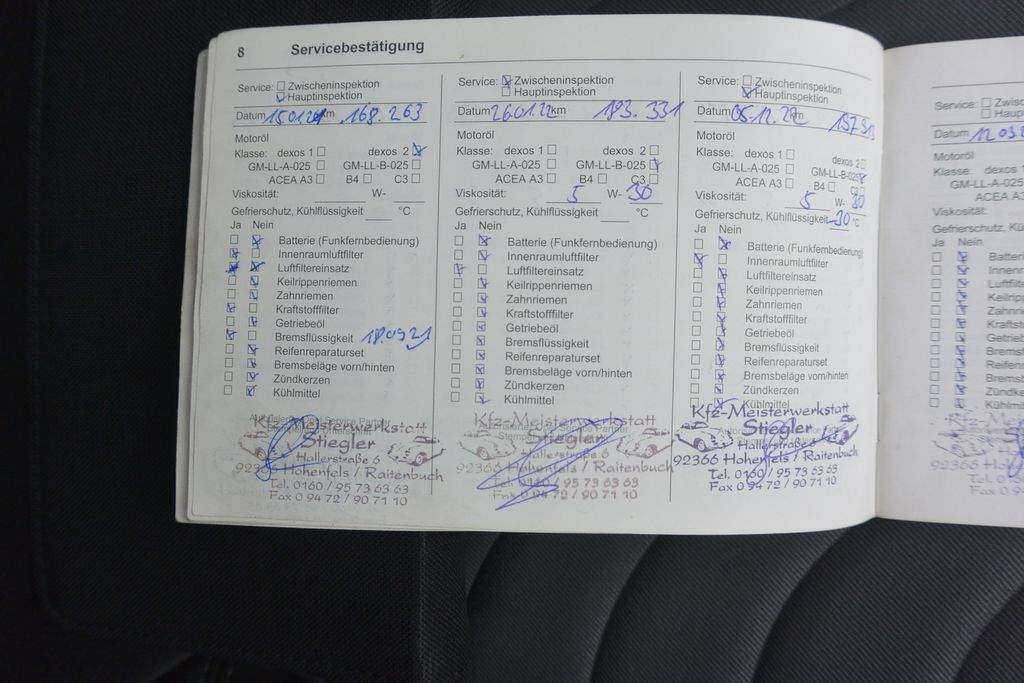 8 Servicebestätigung
Service: Zwischeninspektion
Hauptinspektion
Datum km 168.263
Motoröl
Klasse: dexos 1 dexos 2
GM-LL-A-025 GM-LL-B-025
ACEA A3 B4 C3
Viskosität: W-
Gefrierschutz, Kühlflüssigkeit °C
Ja Nein
Batterie (Funkfernbedienung)
Innenraumluftfilter
Luftfiltereinsatz
Keilrippenriemen
Zahnriemen
Kraftstofffilter
Getriebeöl
Bremsflüssigkeit 18.09.21
Reifenreparaturset
Bremsbeläge vorn/hinten
Zündkerzen
Kühlmittel
Kfz-Meisterwerkstatt
Stiegler
Hallerstraße 6
92366 Hohenfels / Raitenbuch
Tel. 0160 / 95 73 63 63
Fax 0 94 72 / 90 71 10
Service: Zwischeninspektion
Hauptinspektion
Datum 26.01.22 km 193.331
Motoröl
Klasse: dexos 1 dexos 2
GM-LL-A-025 GM-LL-B-025
ACEA A3 B4 C3
Viskosität: 5 W- 30
Gefrierschutz, Kühlflüssigkeit °C
Ja Nein
Batterie (Funkfernbedienung)
Innenraumluftfilter
Luftfiltereinsatz
Keilrippenriemen
Zahnriemen
Kraftstofffilter
Getriebeöl
Bremsflüssigkeit
Reifenreparaturset
Bremsbeläge vorn/hinten
Zündkerzen
Kühlmittel
Kfz-Meisterwerkstatt
Stiegler
Hallerstraße 6
92366 Hohenfels / Raitenbuch
Tel. 0160 / 95 73 63 63
Fax 0 94 72 / 90 71 10
Service: Zwischeninspektion
Hauptinspektion
Datum 05.12.22 km
Motoröl
Klasse: dexos 1 dexos 2
GM-LL-A-025 GM-LL-B-025
ACEA A3 B4 C3
Viskosität: 5 W- 30
Gefrierschutz, Kühlflüssigkeit -30 °C
Ja Nein
Batterie (Funkfernbedienung)
Innenraumluftfilter
Luftfiltereinsatz
Keilrippenriemen
Zahnriemen
Kraftstofffilter
Getriebeöl
Bremsflüssigkeit
Reifenreparaturset
Bremsbeläge vorn/hinten
Zündkerzen
Kühlmittel
Kfz-Meisterwerkstatt
Stiegler
Hallerstraße 6
92366 Hohenfels / Raitenbuch
Tel. 0160 / 95 73 63 63
Fax 0 94 72 / 90 71 10
Service:
Datum
Motoröl
Klasse: dexos 1
GM-LL-A-025
Viskosität:
Ja Nein